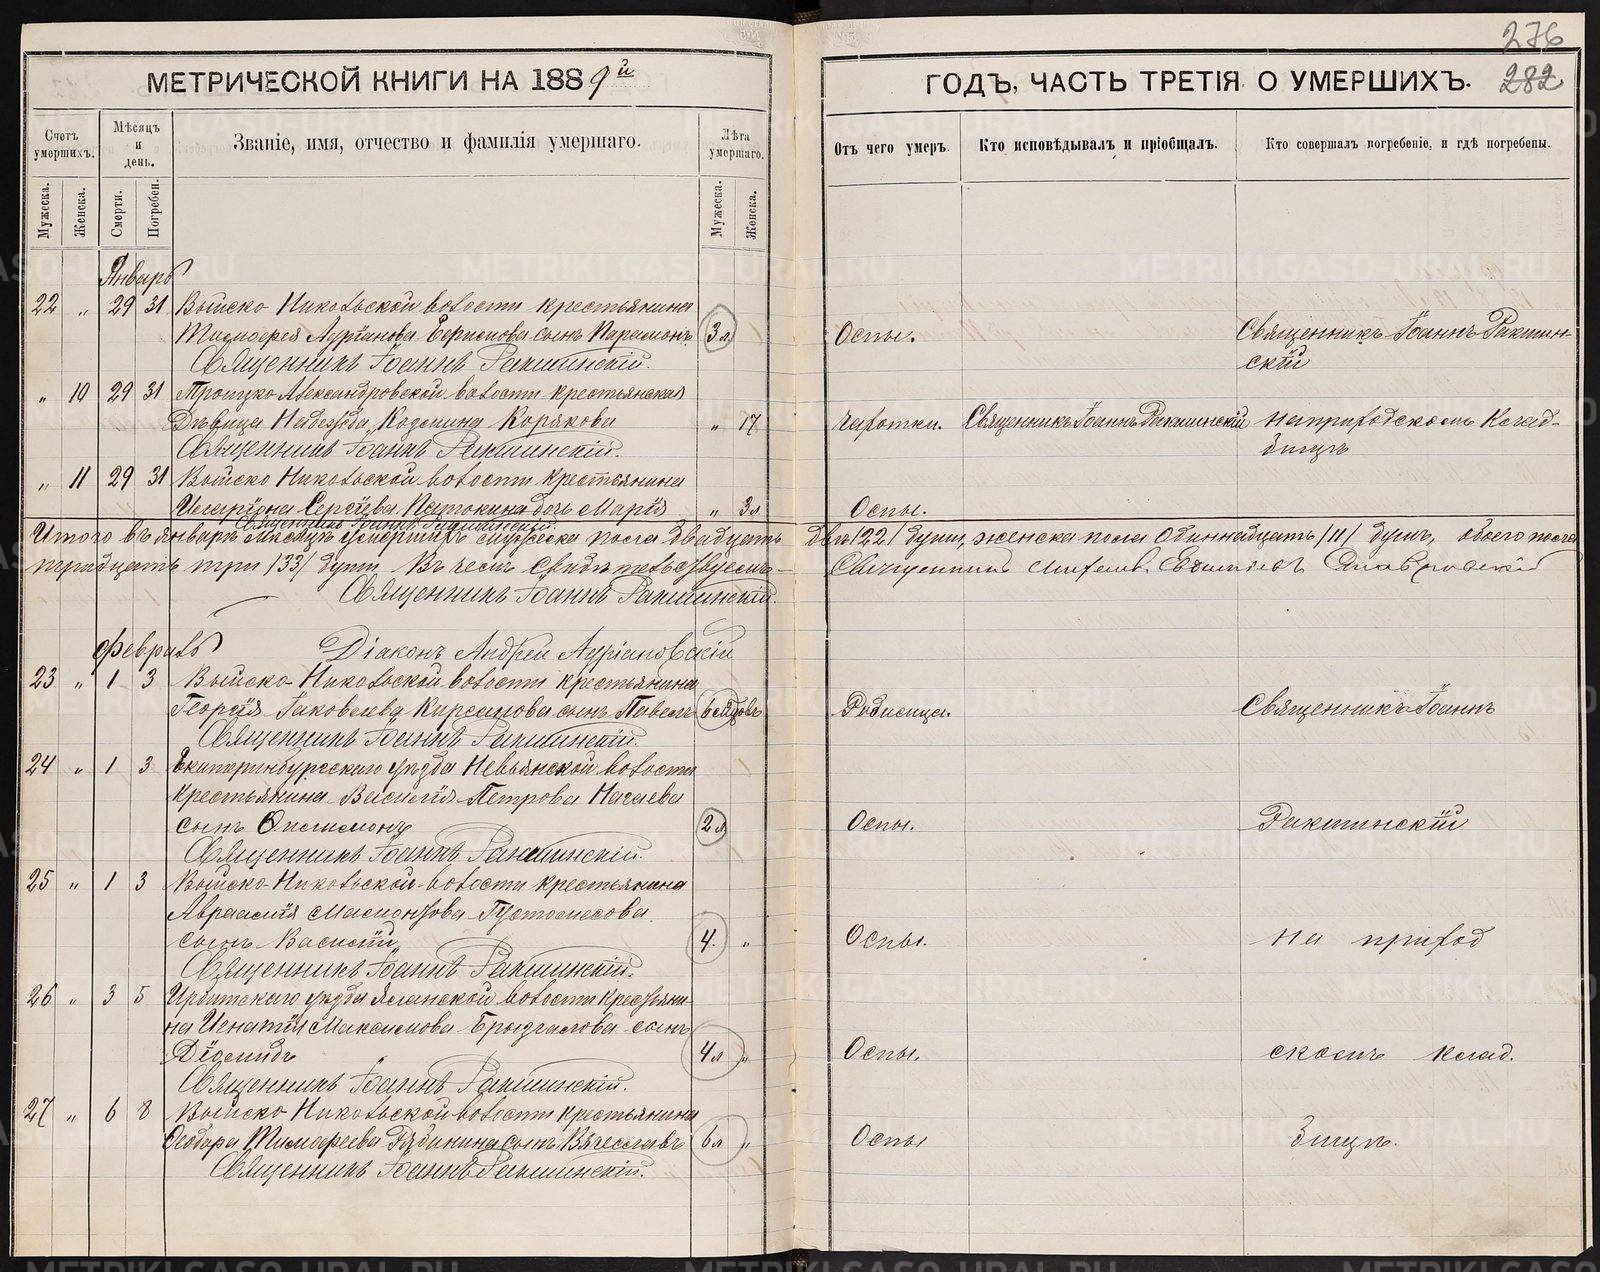 276
МЕТРИЧЕСКОЙ КНИГИ НА 1889й
ГОДЪ, ЧАСТЬ ТРЕТІЯ О УМЕРШИХЪ.
282
Счетъ умершихъ.
Мѣсяцъ и день.
Званіе, имя, отчество и фамилія умершаго.
Лѣта умершаго.
Отъ чего умеръ.
Кто исповѣдывалъ и пріобщалъ.
Кто совершалъ погребеніе, и гдѣ погребены.
Мужеска.
Женска.
Смерти.
Погребен.
Мужеска.
Женска.
Январь
22 " 29 31 Выйско Никольской волости крестьянина
Тимофея Адріанова сынъ Парамонъ 3 л Оспы. Священникъ Іоаннъ Ракшин-
Священникъ Іоаннъ Ракшинскій. скій
" 10 29 31 Троицко Александровской волости крестьянская
Дѣвица Надежда Козмина Корякова " 17 Чахотки. Священникъ Іоаннъ Ракшинскій на приходскомъ клад-
Священникъ Іоаннъ Ракшинскій. бищѣ
" 11 29 31 Выйско Никольской волости крестьянина
Сергіева дочь Марія " 3 л Оспы.
Священникъ Іоаннъ Ракшинскій.
Итого въ январѣ мѣсяцѣ умершихъ мужеска пола двадцать два /22/ души, женска пола одиннадцать /11/ душъ, обоего пола
тридцать три /33/ души Въ чемъ свидѣтельствуемъ
Священникъ Іоаннъ Ракшинскій.
Февраль Діаконъ Андрей Адріановскій
23 " 1 3 Выйско-Никольской волости крестьянина
Георгія Іаковлева Кирсанова сынъ Павелъ Родимца. Священникъ Іоаннъ
Священникъ Іоаннъ Ракшинскій.
24 " 1 3 Екатеринбургскаго уѣзда Невьянской волости
крестьянина Василія Петрова
сынъ Филимонъ 2 л Оспы. Ракшинскій
Священникъ Іоаннъ Ракшинскій.
25 " 1 3 Выйско-Никольской волости крестьянина
Авраамія
сынъ Василій 4. " Оспы. на приход
Священникъ Іоаннъ Ракшинскій.
26 " 3 5 Ирбитскаго уѣзда волости крестьяни-
на Игнатія Максимова Брызгалова сынъ
Діомидъ 4 л " Оспы. скомъ клад.
Священникъ Іоаннъ Ракшинскій.
27 " 6 8 Выйско Никольской волости крестьянина
Феодора Тимофеева Рябинина сынъ Вячеславъ 6 л " Оспы бищѣ.
Священникъ Іоаннъ Ракшинскій.
METRIKI.GASO-URAL.RU